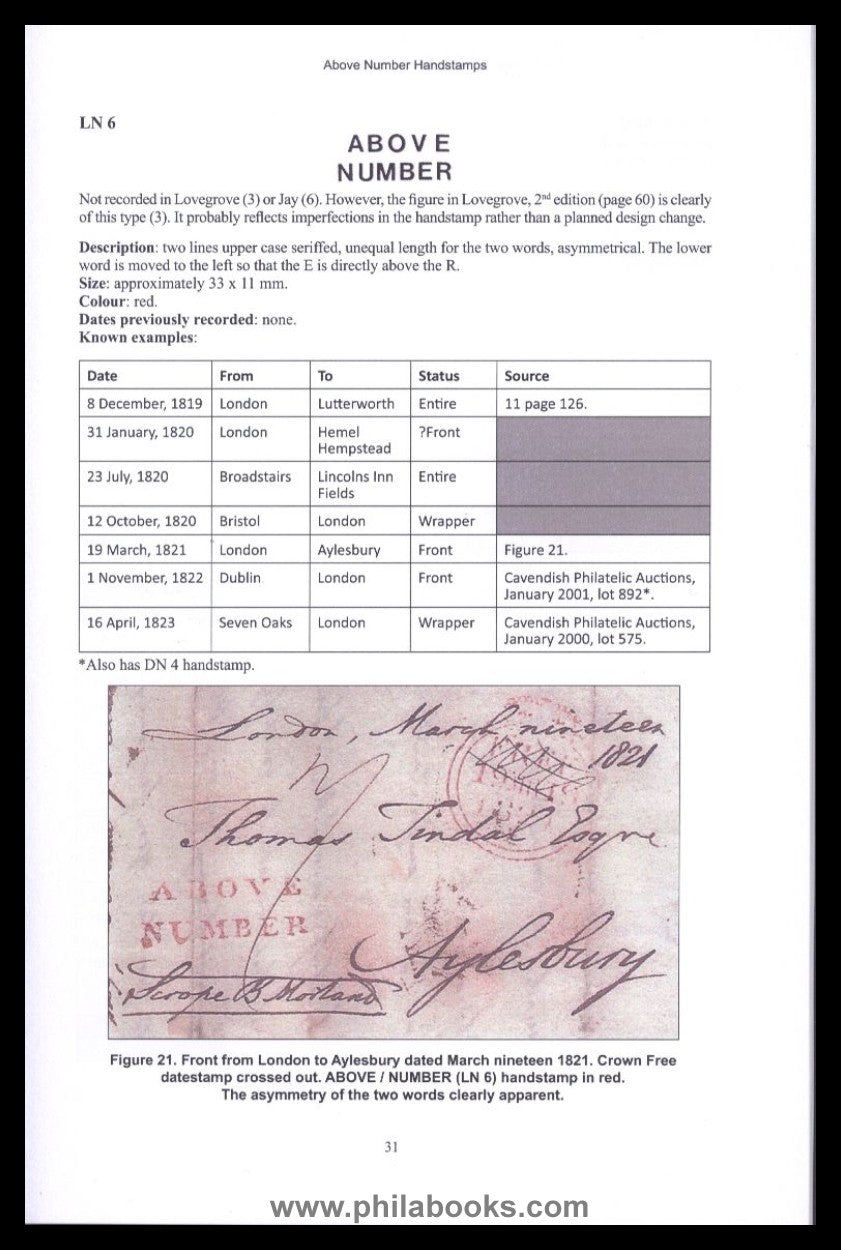 Above Number Handstamps
LN 6
ABOVE
NUMBER
Not recorded in Lovegrove (3) or Jay (6). However, the figure in Lovegrove, 2nd edition (page 60) is clearly
of this type (3). It probably reflects imperfections in the handstamp rather than a planned design change.
Description: two lines upper case seriffed, unequal length for the two words, asymmetrical. The lower
word is moved to the left so that the E is directly above the R.
Size: approximately 33 x 11 mm.
Colour: red.
Dates previously recorded: none.
Known examples:
Date From To Status Source
8 December, 1819 London Lutterworth Entire 11 page 126.
31 January, 1820 London Hemel ?Front
Hempstead
23 July, 1820 Broadstairs Lincolns Inn Entire
Fields
12 October, 1820 Bristol London Wrapper
19 March, 1821 London Aylesbury Front Figure 21.
1 November, 1822 Dublin London Front Cavendish Philatelic Auctions,
January 2001, lot 892*.
16 April, 1823 Seven Oaks London Wrapper Cavendish Philatelic Auctions,
January 2000, lot 575.
*Also has DN 4 handstamp.
London, March nineteen
1821
Thomas Tindal Esqre
ABOVE
NUMBER
Aylesbury
Scrope B Morland
Figure 21. Front from London to Aylesbury dated March nineteen 1821. Crown Free
datestamp crossed out. ABOVE / NUMBER (LN 6) handstamp in red.
The asymmetry of the two words clearly apparent.
31
www.philabooks.com